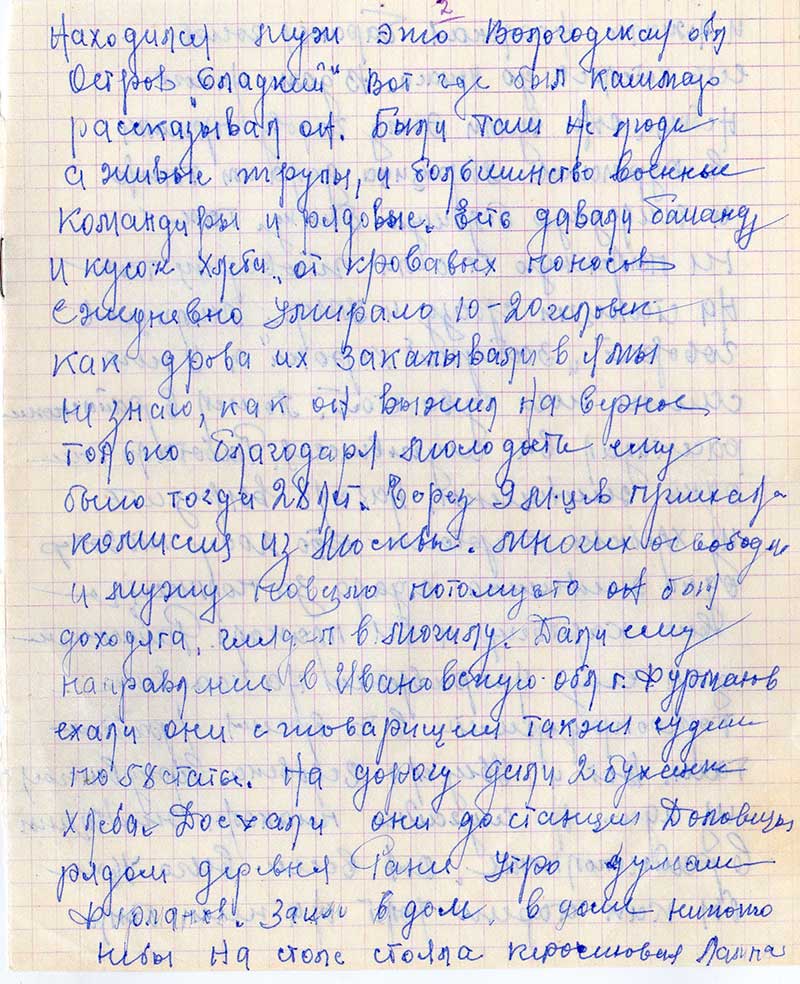 2
Находился муж это Вологодская обл
Остров "Сладкий" Вот где был кашмар
рассказывал он. Были там не люди
а живые трупы, и большинство военные
командиры и рядовые. Есть давали баланду
и кусок хлеба, от кровавых поносов
ежедневно умирало 10-20 человек
как дрова их закапывали в ямы
не знаю, как он выжил наверное
только благодаря молодости ему
было тогда 28 лет. Через 9 м-цев приехала
комиссия из Москвы. Многих освободили
и мужу повезло потомучто он был
доходяга, глядел в могилу. Дали ему
направление в Ивановскую обл г. Фурманов
ехали они с товарищем таким судим
по 58 статьи. На дорогу дали 2 буханки
хлеба. Доехали они до станции
рядом деревня Утро думали
Фурманов. Зашли в дом, в доме никого
небы на столе стояла керосиновая лампа